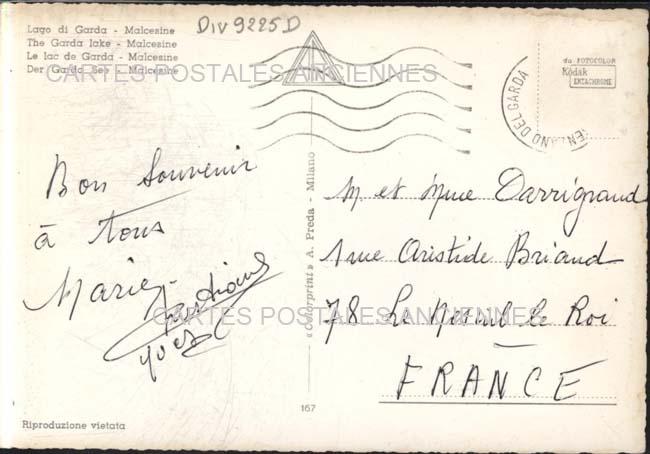 Div 9225 D
Lago di Garda - Malcesine
The Garda lake - Malcesine
Le lac de Garda - Malcesine
Der Garda See - Malcesine
CARTES POSTALES ANCIENNES
da FOTOCOLOR
Kodak
EKTACHROME
ENZANO DEL GARDA
Bon Souvenir
à tous
Marie
Yves
«Colorprint» A. Preda - Milano
M et Mme Darrigrand
1 rue Aristide Briand
78 Le Mesnil le Roi
FRANCE
CARTES POSTALES ANCIENNES
167
Riproduzione vietata